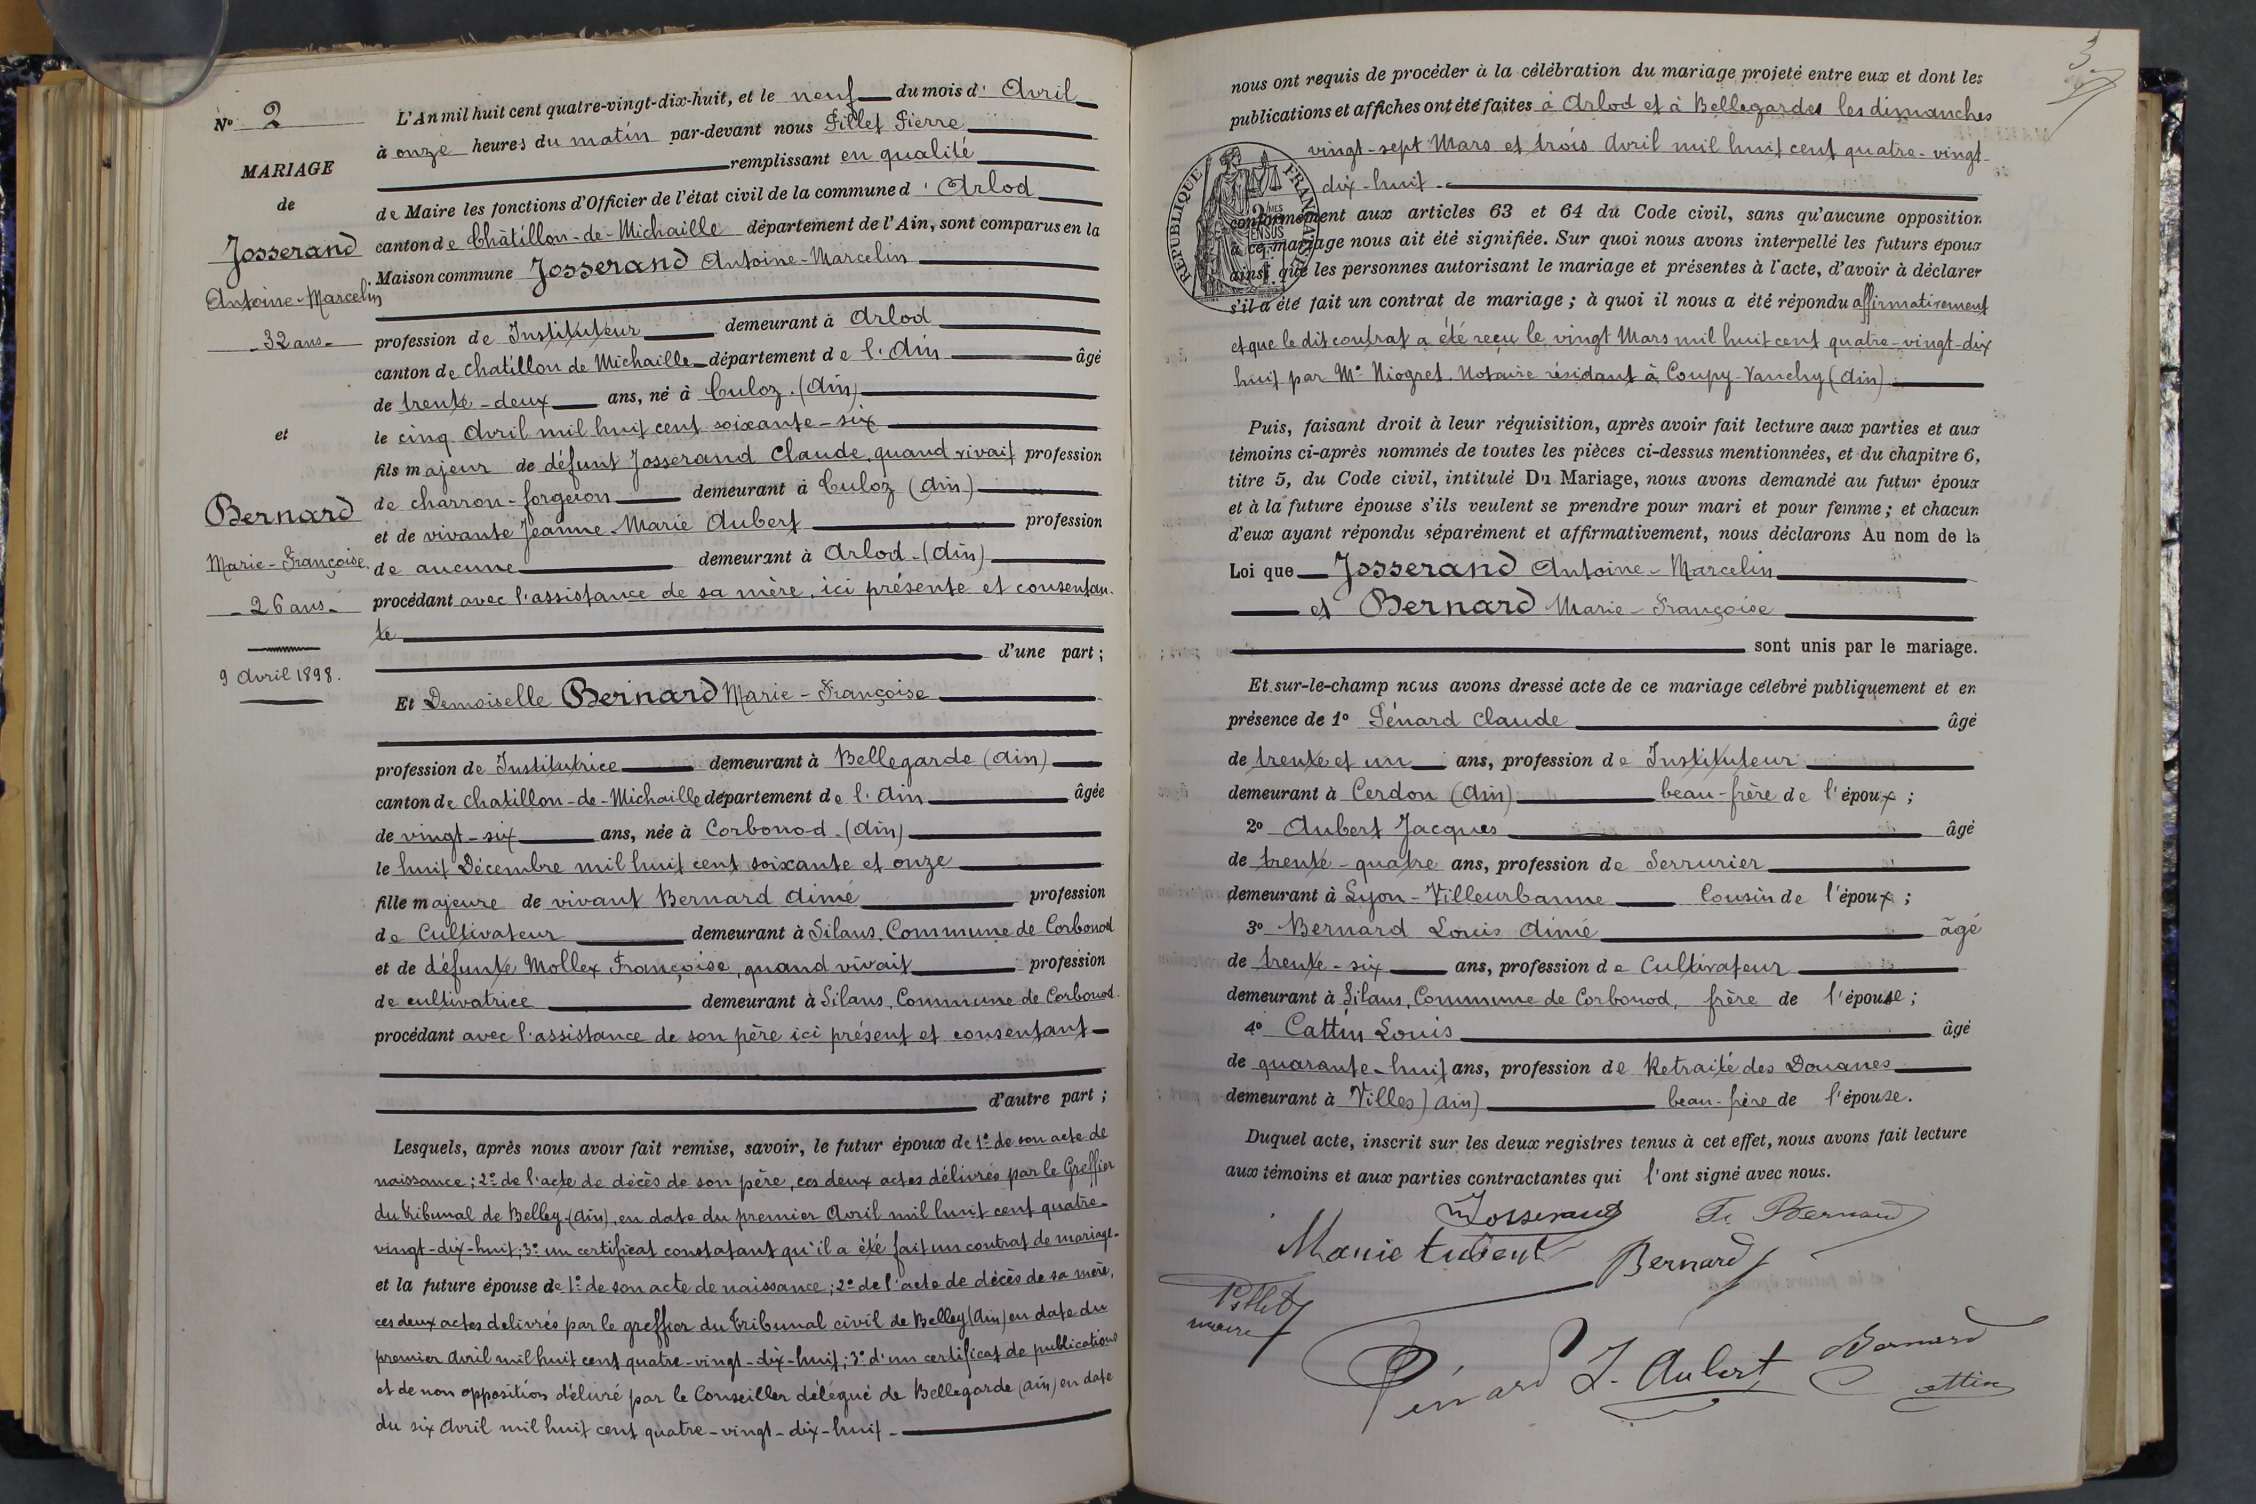 N° 2
MARIAGE
de
Josserand
Antoine-Marcelin
- 32 ans -
et
Bernard
Marie-Françoise.
- 26 ans -
9 Avril 1898.
L'An mil huit cent quatre-vingt-dix-huit, et le neuf du mois d' Avril
à onze heures du matin par-devant nous Pillet Pierre
remplissant en qualité
de Maire les fonctions d'Officier de l'état civil de la commune d' Arlod
canton de Châtillon-de-Michaille département de l'Ain, sont comparus en la
Maison commune Josserand Antoine-Marcelin
profession de Instituteur demeurant à Arlod
canton de Chatillon de Michaille département de l'Ain âgé
de trente-deux ans, né à Culoz. (Ain)
le cinq Avril mil huit cent soixante-six
fils majeur de défunt Josserand Claude, quand vivait profession
de charron-forgeron demeurant à Culoz (Ain)
et de vivante Jeanne-Marie Aubert profession
de aucune demeurant à Arlod-(Ain)
procédant avec l'assistance de sa mère, ici présente et consentan-
te
d'une part ;
Et Demoiselle Bernard Marie-Françoise
profession de Institutrice demeurant à Bellegarde (Ain)
canton de Chatillon-de-Michaille département de l'Ain âgée
de vingt-six ans, née à Corbonod-(Ain)
le huit Décembre mil huit cent soixante et onze
fille majeure de vivant Bernard Aimé profession
de Cultivateur demeurant à Silans, Commune de Corbonod
et de défunte Mollex Françoise, quand vivait profession
de cultivatrice demeurant à Silans, Commune de Corbonod.
procédant avec l'assistance de son père ici présent et consentant
d'autre part ;
Lesquels, après nous avoir fait remise, savoir, le futur époux de 1° de son acte de
naissance ; 2° de l'acte de décès de son père, ces deux actes délivrés par le Greffier
du tribunal de Belley-(Ain), en date du premier Avril mil huit cent quatre-
vingt-dix-huit ; 3° un certificat constatant qu'il a été fait un contrat de mariage-
et la future épouse de 1° de son acte de naissance ; 2° de l'acte de décès de sa mère,
ces deux actes délivrés par le greffier du tribunal civil de Belley (Ain) en date du
premier Avril mil huit cent quatre-vingt-dix-huit ; 3° d'un certificat de publications
et de non opposition délivré par le Conseiller délégué de Bellegarde (Ain) en date
du six Avril mil huit cent quatre-vingt-dix-huit-
3
nous ont requis de procéder à la célébration du mariage projeté entre eux et dont les
publications et affiches ont été faites à Arlod et à Bellegarde les dimanches
vingt-sept Mars et trois Avril mil huit cent quatre-vingt-
dix-huit-
RÉPUBLIQUE FRANÇAISE
conformément aux articles 63 et 64 du Code civil, sans qu'aucune opposition
à ce mariage nous ait été signifiée. Sur quoi nous avons interpellé les futurs époux
ainsi que les personnes autorisant le mariage et présentes à l'acte, d'avoir à déclarer
s'il a été fait un contrat de mariage ; à quoi il nous a été répondu affirmativement
et que le dit contrat a été reçu le vingt Mars mil huit cent quatre-vingt-dix
huit par Me Niogret. Notaire résidant à Coupy-Vanchy (Ain).
Puis, faisant droit à leur réquisition, après avoir fait lecture aux parties et aux
témoins ci-après nommés de toutes les pièces ci-dessus mentionnées, et du chapitre 6,
titre 5, du Code civil, intitulé Du Mariage, nous avons demandé au futur époux
et à la future épouse s'ils veulent se prendre pour mari et pour femme ; et chacun
d'eux ayant répondu séparément et affirmativement, nous déclarons Au nom de la
Loi que Josserand Antoine-Marcelin
et Bernard Marie-Françoise
sont unis par le mariage.
Et sur-le-champ nous avons dressé acte de ce mariage célébré publiquement et en
présence de 1° Pénard Claude âgé
de trente et un ans, profession de Instituteur
demeurant à Cerdon (Ain) beau-frère de l'époux ;
2° Aubert Jacques âgé
de trente-quatre ans, profession de Serrurier
demeurant à Lyon-Villeurbanne Cousin de l'époux ;
3° Bernard Louis Aimé âgé
de trente-six ans, profession de Cultivateur
demeurant à Silans, Commune de Corbonod, frère de l'épouse ;
4° Cattin Louis âgé
de quarante-huit ans, profession de Retraité des Douanes
demeurant à Villes) Ain) beau-frère de l'épouse.
Duquel acte, inscrit sur les deux registres tenus à cet effet, nous avons fait lecture
aux témoins et aux parties contractantes qui l'ont signé avec nous.
Josserand Fe Bernard
Marie Aubert Bernard
Pillet
maire
Pénard J. Aubert Bernard
Cattin